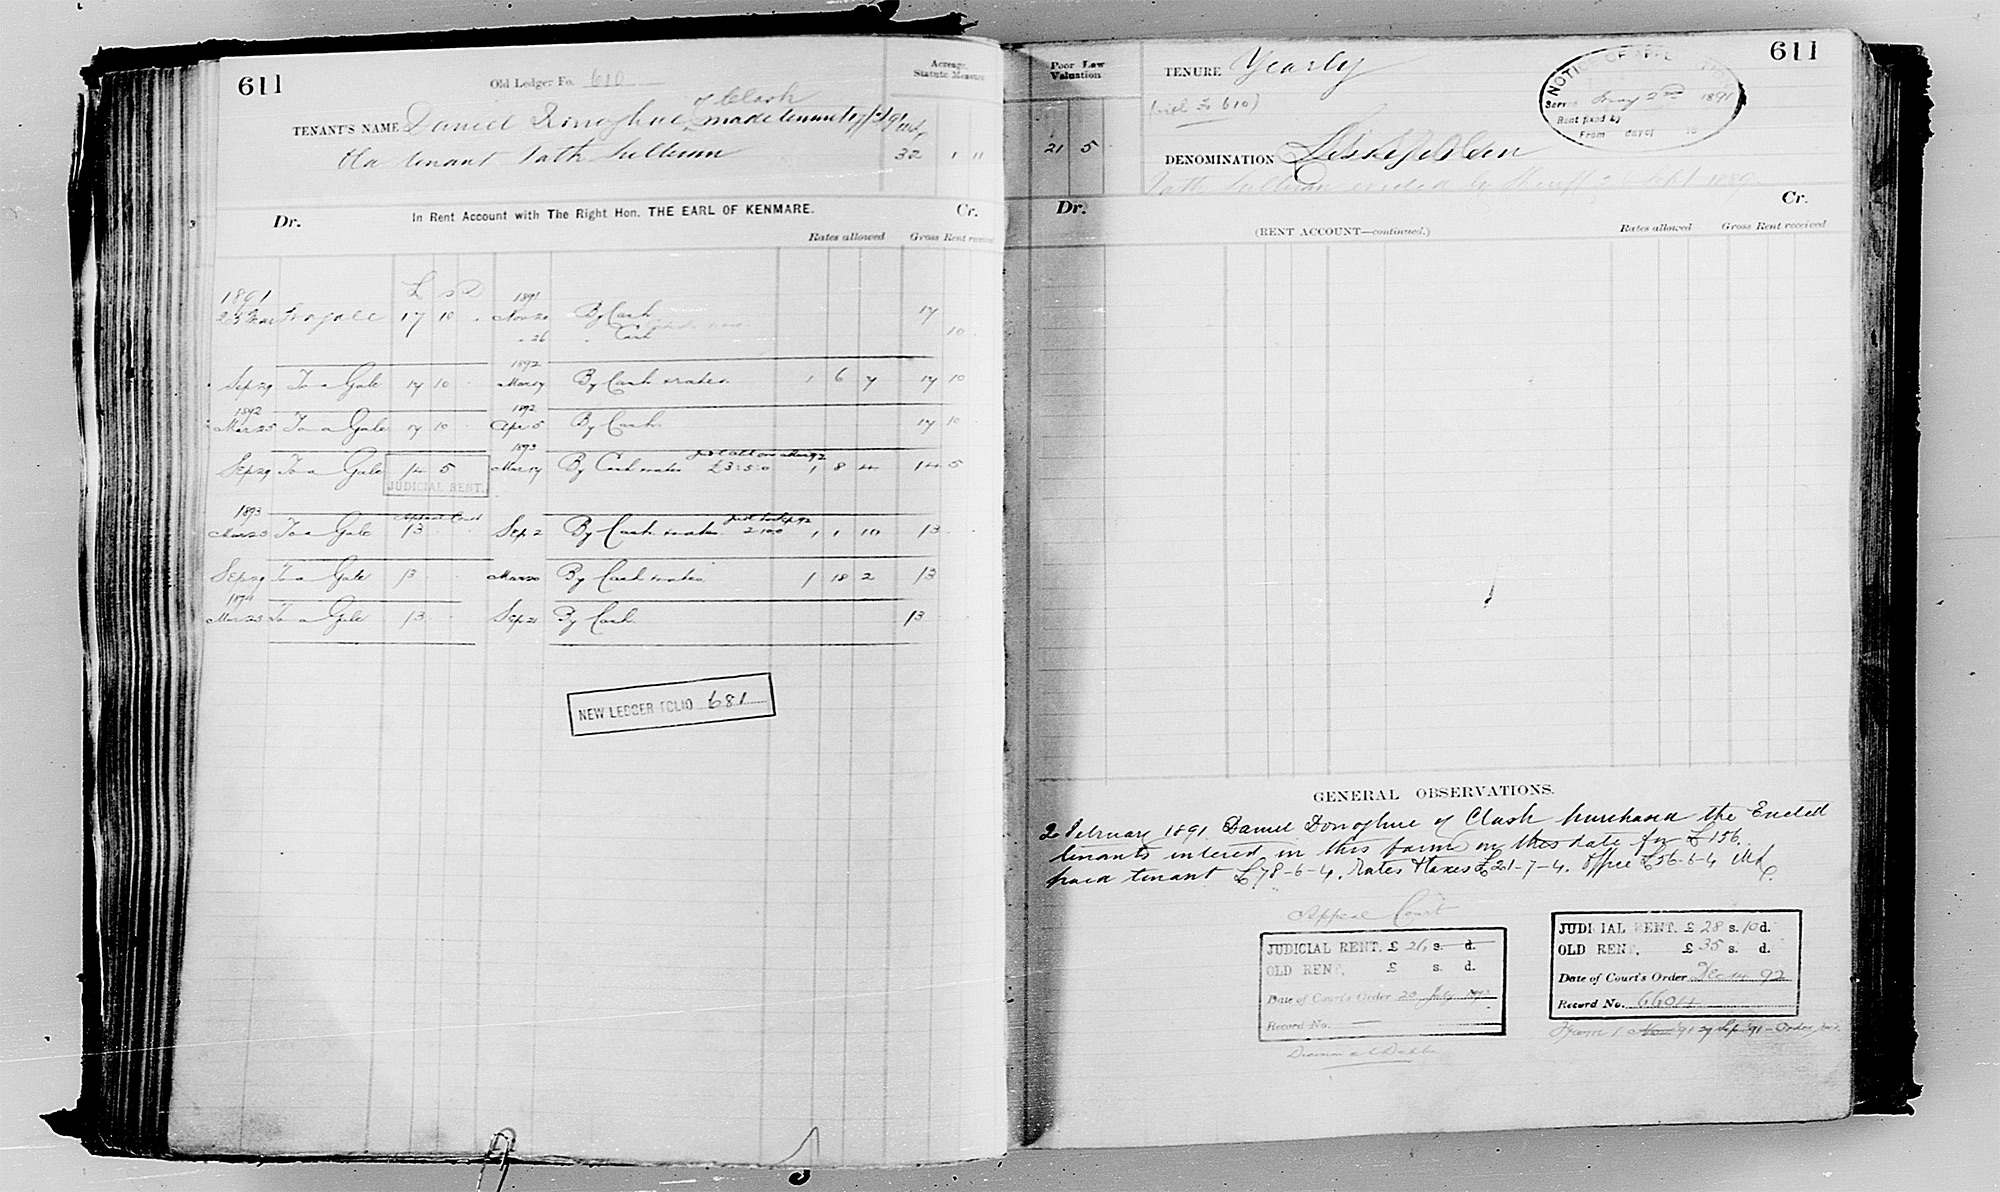 611
Old Ledger Fo. 610
Acreage, Statute Measure
of Clash
TENANT'S NAME Daniel Donoghue made tenant
Old tenant Path Sullivan
32 1 11
Dr. In Rent Account with The Right Hon. THE EARL OF KENMARE. Cr.
Rates allowed Gross Rent received
£ s D
1891 1891
25 Mar To a Gale 17 10 . Nov 20 By Cash 17
" 26 " Cash 10
1892
Sep 29 To a Gale 17 10 Mar 17 By Cash & rates 1 6 7 17 10
1892 1892
Mar 25 To a Gale 17 10 Apr 5 By Cash 17 10
1893
Sep 29 To a Gale 14 5 Mar 17 By Cash & rates £3:5:0 1 8 4 14 5
JUDICIAL RENT.
1893 Appeal Court
Mar 25 To a Gale 13 Sep 2 By Cash & rates 2 10 0 1 1 10 13
Sep 29 To a Gale 13 Mar 20 By Cash & rates 1 18 2 13
1894
Mar 25 To a Gale 13 Sep 21 By Cash 13
NEW LEDGER FOLIO 681
611
Poor Law Valuation
21 5
TENURE Yearly
(vide Fo 610)
NOTICE OF
Served May 2nd 1891
Rent fixed by
From day of 18
DENOMINATION
Path Sullivan evicted by Sheriff Sept
Dr. Cr.
(RENT ACCOUNT—continued.) Rates allowed Gross Rent received
GENERAL OBSERVATIONS.
2 February 1891 Daniel Donoghue of Clash purchased the Evicted
tenants interest in this farm on this date for £156.
paid tenant £78-6-4, Rates & taxes £21-7-4. Office £56-6-4
Appeal Court
JUDICIAL RENT. £ 26 s. d.
OLD RENT, £ s. d.
Date of Court's Order 20 July 1893
Record No. —
JUDICIAL RENT. £ 28 s. 10 d.
OLD RENT, £ 35 s. d.
Date of Court's Order Dec 14 92
Record No. 6604
From 1 Nov 91 29 Sep '91 - Order